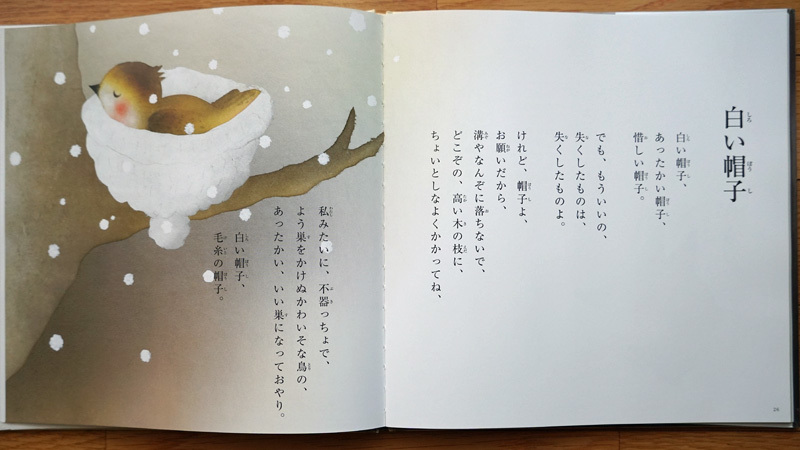 白い帽子
白い帽子、
あったかい帽子、
惜しい帽子。
でも、もういいの、
失くしたものは、
失くしたものよ。
けれど、帽子よ、
お願いだから、
溝やなんぞに落ちないで、
どこぞの、高い木の枝に、
ちょいとしなよくかかってね、
私みたいに、不器っちょで、
よう巣をかけぬかわいそな鳥の、
あったかい、いい巣になっておやり。
白い帽子、
毛糸の帽子。
26